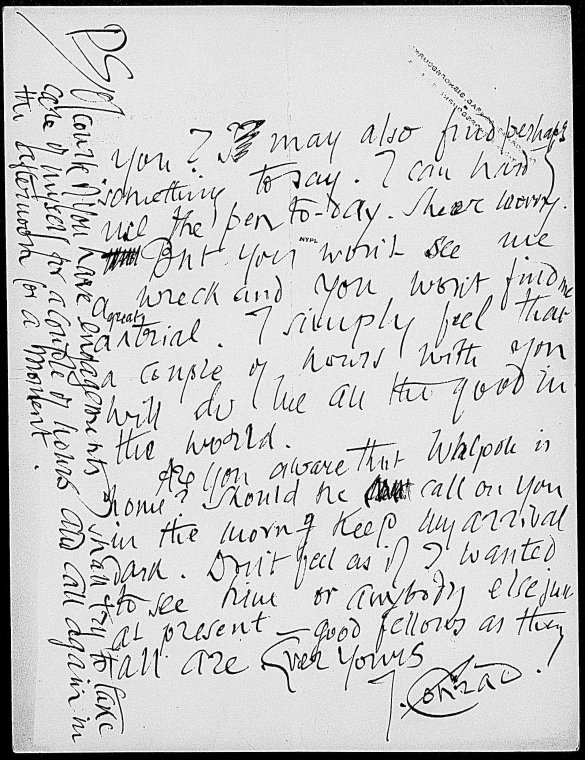 you? I may also find perhaps
something to say. I can hardly
use the pen to-day. Sheer worry.
But you won't see me
NYPL
a wreck and you won't find me
a great trial. I simply feel that
a couple of hours with you
will do me all the good in
the world.
Are you aware that Walpole is
home? Should he call on you
in the morng keep my arrival
dark. Don't feel as if I wanted
to see him or anybody else just
at present — good fellows as they
all are. Ever Yours
J. Conrad.
PS Of course if you have engagements I shall try to take
care of myself for a couple of hours and call again in
the afternoon for a moment.